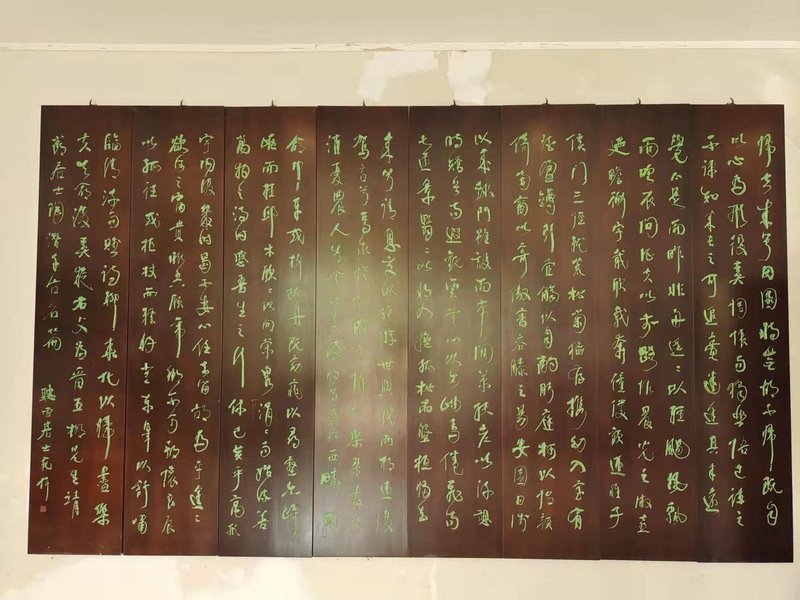 歸去來兮田園將蕪胡不歸既自
以心為形役奚惆悵而獨悲悟已往之
不諫知來者之可追實迷途其未遠
覺今是而昨非舟遙遙以輕颺風飄飄
而吹衣問征夫以前路恨晨光之熹微
乃瞻衡宇載欣載奔僮僕歡迎稚子
候門三徑就荒松菊猶存攜幼入室有
酒盈罇引壺觴以自酌眄庭柯以怡顏
倚南窗以寄傲審容膝之易安園日涉
以成趣門雖設而常關策扶老以流憩
時矯首而遐觀雲無心以出岫鳥倦飛而
知還景翳翳以將入撫孤松而盤桓歸去
來兮請息交以絕游世與我而相違復
駕言兮焉求悅親戚之情話樂琴書以
消憂農人告余以春及將有事於西疇或
命巾車或棹孤舟既窈窕以尋壑亦崎
嶇而經邱木欣欣以向榮泉涓涓而始流善
萬物之得時感吾生之行休已矣乎寓形
宇內復幾時曷不委心任去留胡為乎遑遑
欲何之富貴非吾願帝鄉不可期懷良辰
以孤往或植杖而耘耔登東皋以舒嘯
臨清流而賦詩聊乘化以歸盡樂
夫天命復奚疑右文為晉五柳先生靖
節居士陶潛
聽雨居士